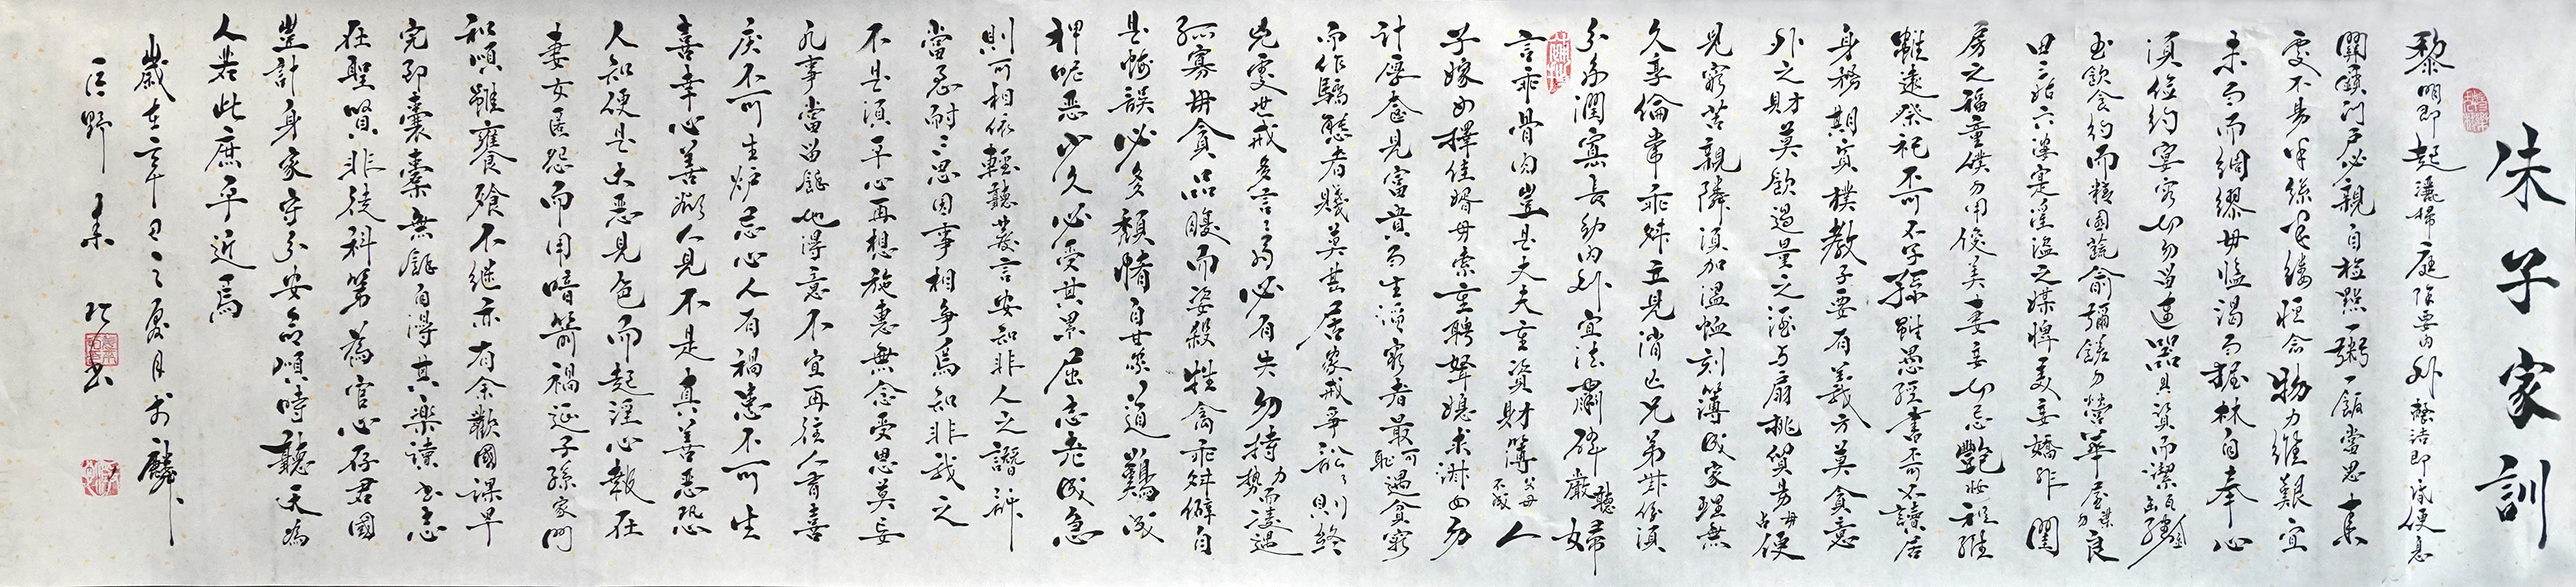 朱子家訓
黎明即起灑掃庭除要內外整潔即昏便息
關鎖門戶必親自檢點一粥一飯當思來
處不易半絲半縷恒念物力維艱宜
未雨而綢繆毋臨渴而掘林自奉必
須儉約宴客切勿留連器具質而潔瓦缶勝金
玉飲食約而精園蔬愈珍饈勿營華屋勿謀良
田三姑六婆實淫盜之媒婢美妾嬌非閨
房之福童僕勿用俊美妻妾切忌艷妝祖
雖遠祭祀不可不子孫雖愚經書不可不讀居
身務期質樸教子要有義方莫貪意
外之財莫飲過量之酒与肩挑貿易毋占便
見窮苦親隣須加溫恤刻薄成家理無
久享倫常乖舛立見消亡兄弟叔侄須
分多潤寡長幼內外宜法肅辭嚴聽婦
言乖骨肉豈是丈夫重資財薄父母不成人
子嫁女擇佳婿毋索重聘娶媳求淑女勿
計厚奩見富貴而生諂容者最可恥遇貧窮
而作驕態者賤莫甚居家戒爭訟訟則終
凶處世戒多言言多必有失勿恃勢力而凌逼
孤寡毋貪口腹而恣殺牲禽乖舛僻自
是悔誤必多頹惰自甘家道難成
狎昵惡少久必受其累屈志老成急
則可相依輕聽發言安知非人之譖訴
當忍耐三思因事相爭焉知非我之
不是須平心再想施惠無念受恩莫忘
凡事當留餘地得意不宜再往人有喜
慶不可生妒忌心人有禍患不可生
喜幸心善欲人見不是真善惡恐
人知便是大惡見色而起淫心報在
妻女匿怨而用暗箭禍延子孫家門
和順雖饔飧不繼亦有余歡國課早
完即囊橐無餘自得其樂讀書志
在聖賢非徒科第為官心存君國
豈計身家守分安命順時聽天為
人若此庶乎近焉
歲在辛丑之夏月於麟
巨野